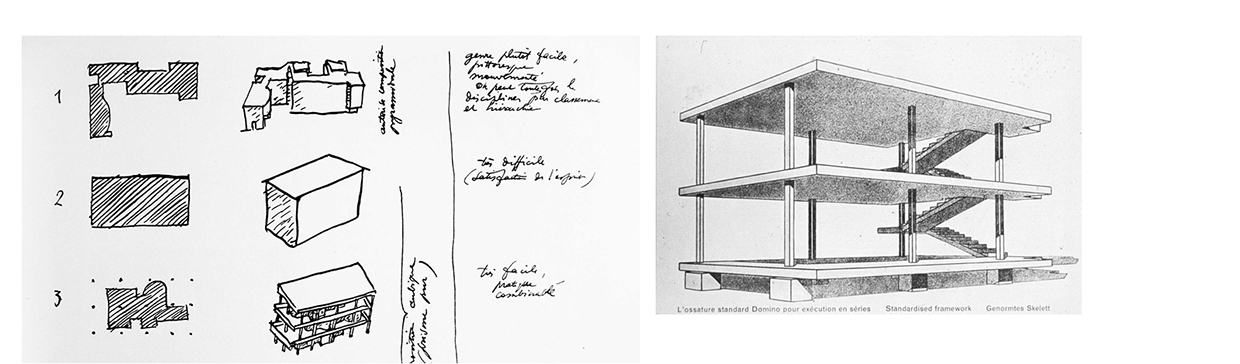 1
genre plutôt facile,
pittoresque
mouvementé
on peut toutefois le
discipliner par classement
et hiérarchie
2
très difficile
(satisfaction de l'esprit)
3
très facile,
pratique
combinable
L'ossature standard Domino pour exécution en séries Standardised framework Genormtes Skelett